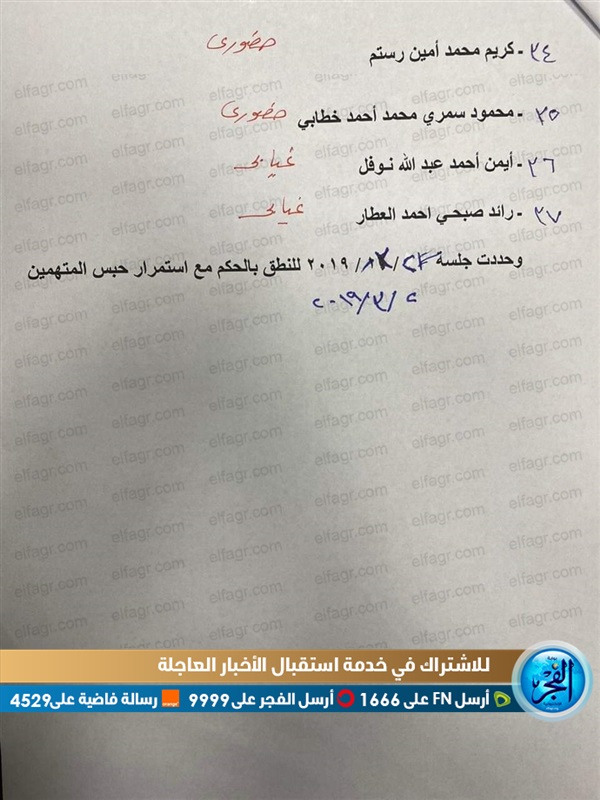 ٣٤ - كريم محمد أمين رستم حضورى
٣٥ - محمود سمري محمد أحمد خطابي حضورى
٣٦ - أيمن أحمد عبد الله نـوفل غيابى
٣٧ - رائد صبحـي احمد العطار غيابى
وحددت جلسة / / ٢٠١٩ للنطق بالحكم مع استمرار حبس المتهمين
elfagr.com
للاشتراك في خدمة استقبال الأخبار العاجلة
أرسل FN على 1666 أرسل الفجر على 9999 رسالة فاضية على 4529
الفجر